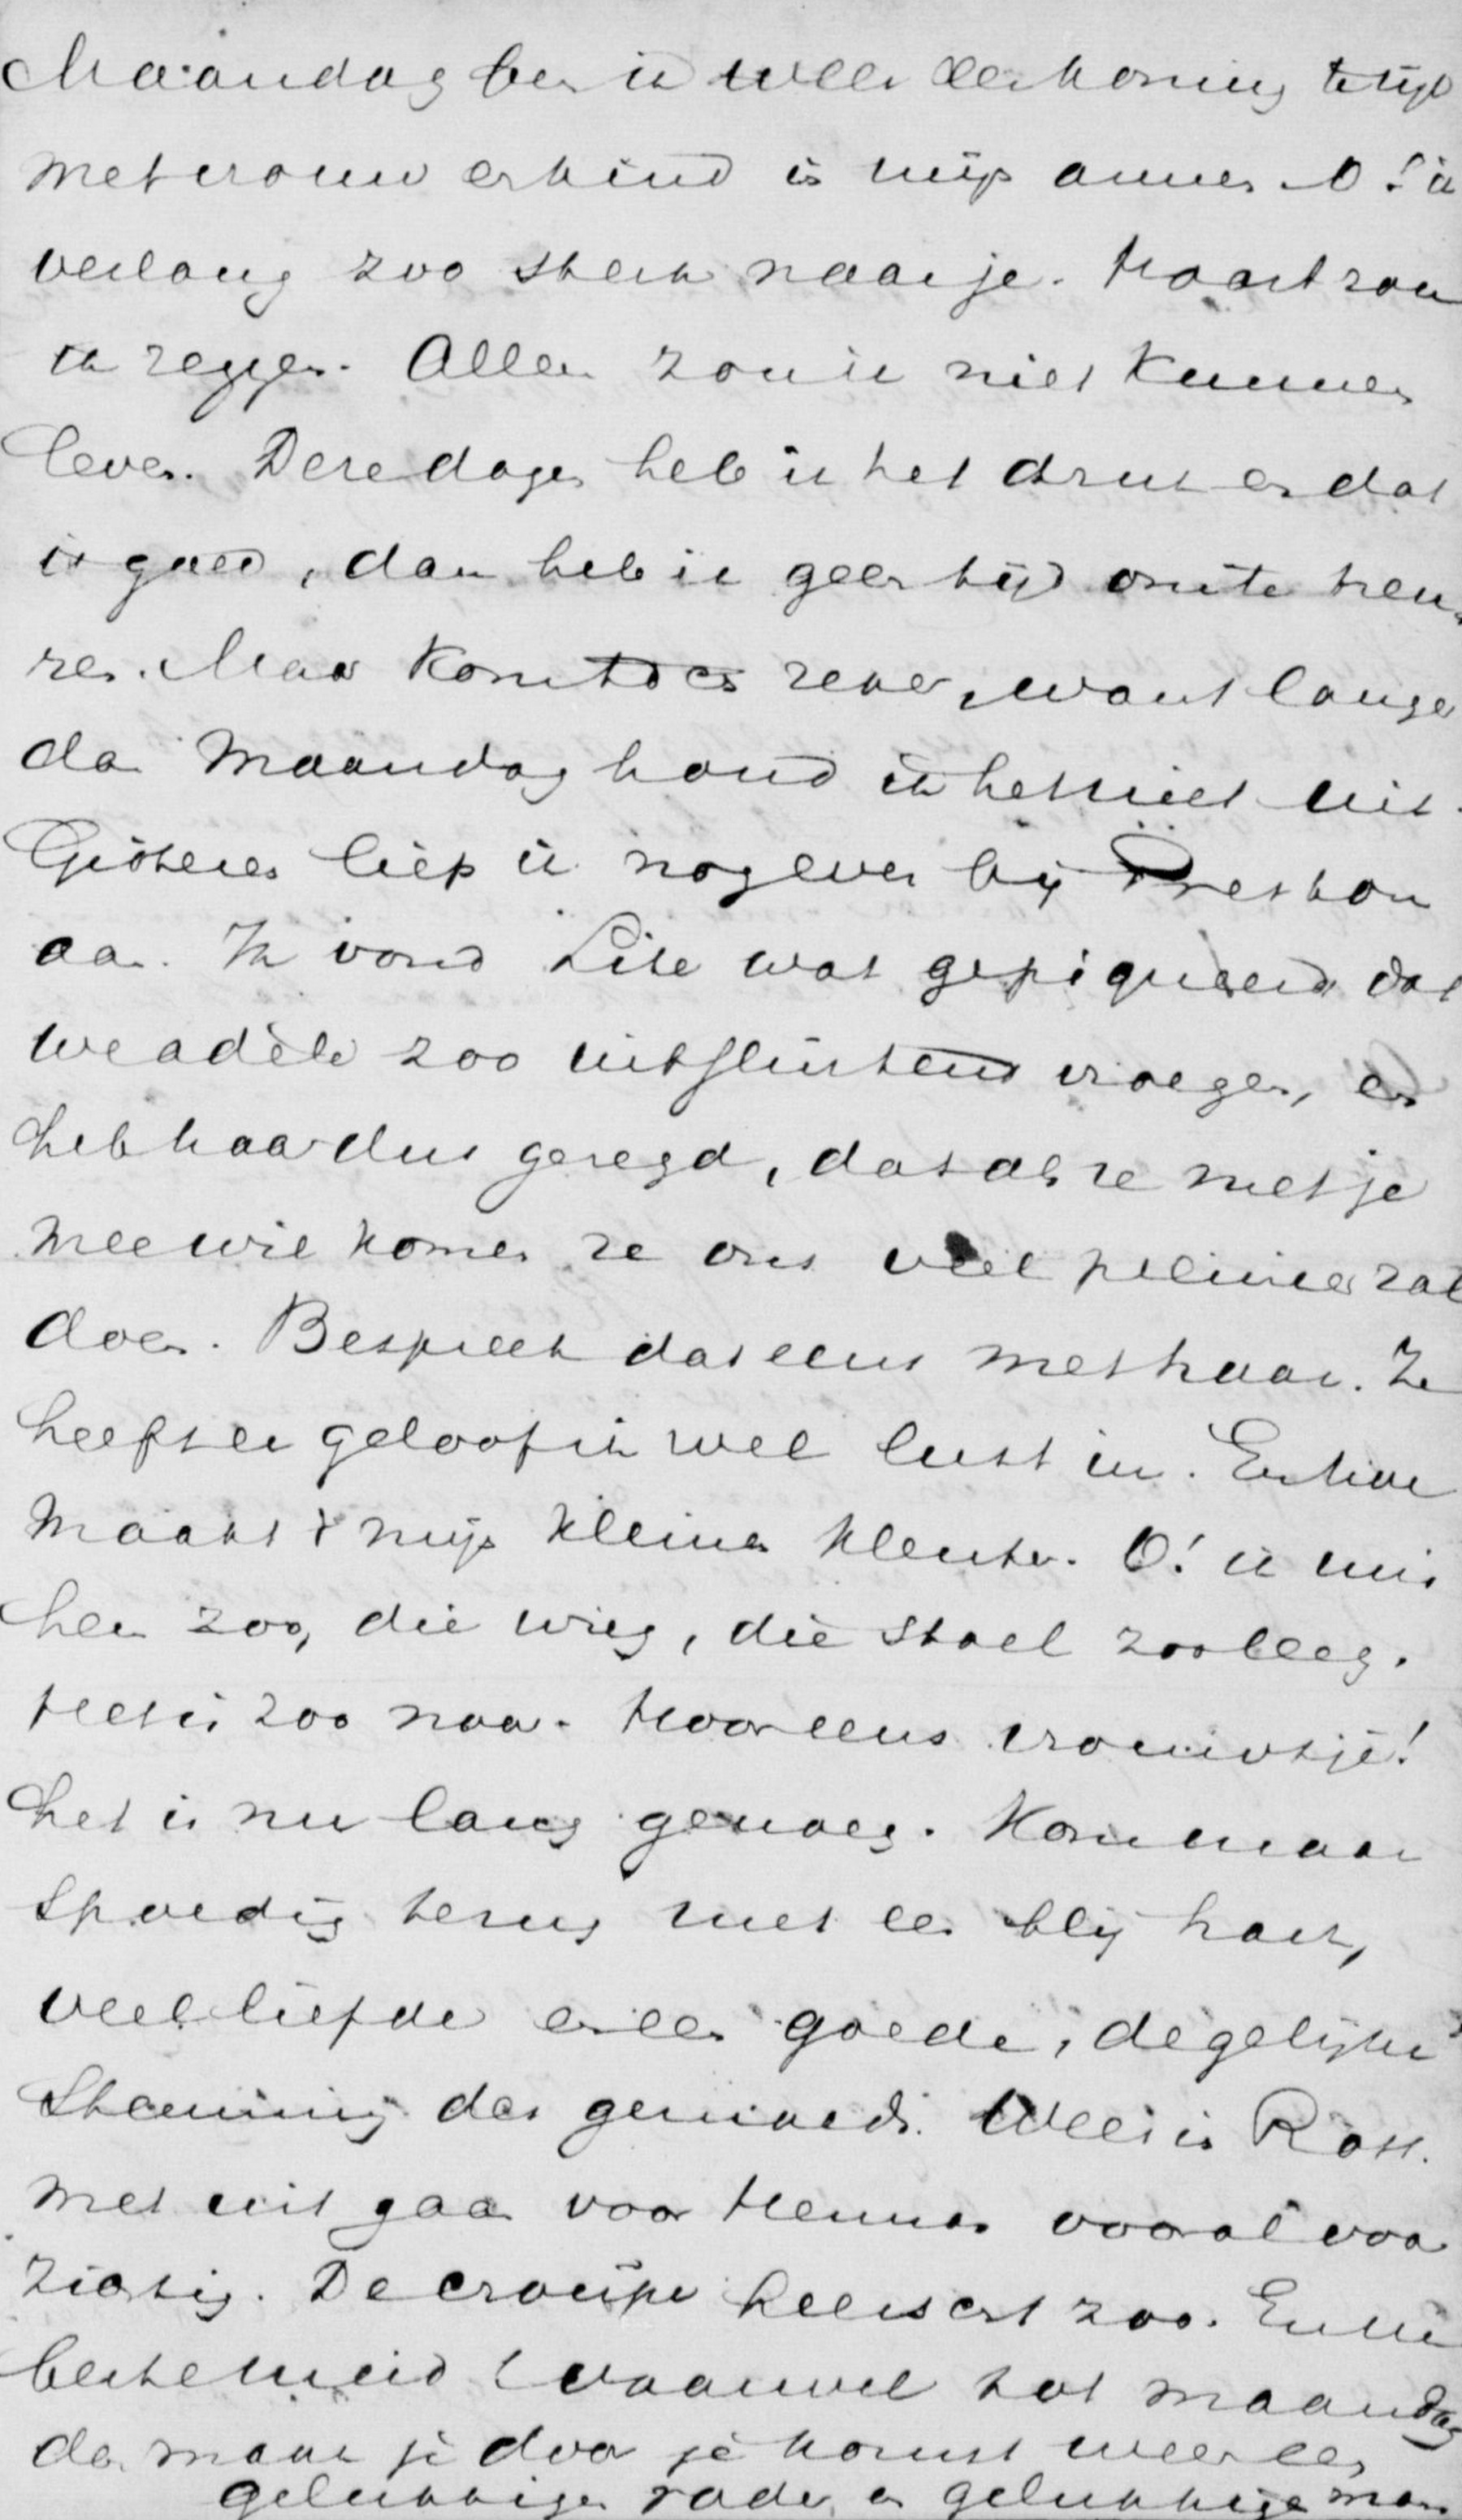 Maandag ben ik weer een koning te rijk
met vrouw en kind in mijn armen. O! ik
verlang zoo sterk naar je. Haast zou
ik zeggen. Alleen zou ik niet kunnen
leven. Deze dagen heb ik het druk en dat
is goed, dan heb ik geen tijd om te treu-
ren. Maar komt dus zeker, want langer
dan Maandag houd ik het niet uit.
Gisteren liep ik nog even bij
aan. Ik vond Lise wat gepiqueerd dat
we Adèle zoo uitsluitend vroegen, en
heb haar dus gezegd, dat als ze met je
mee wil komen ze ons veel plezier zal
doen. Bespreek dat eens met haar. Ze
heeft er geloof ik wel lust in. En hoe
maakt 't mijn kleine kleuter. O! ik mis
hem zoo, die wieg, die stoel zoo leeg.
Het is zoo naar. Hoor eens vrouwtje!
het is nu lang genoeg. Kom maar
spoedig terug met een blij hart,
veel liefde en een goede, degelijke
stemming des gemoeds. Wees in Rott.
met uit gaan voor Herman vooral voor-
zichtig. De croupe heerscht zoo. En nu
beste meid! Vaarwel tot maandag
dan maak je door je komst weer een
gelukkigen vader en gelukkige man